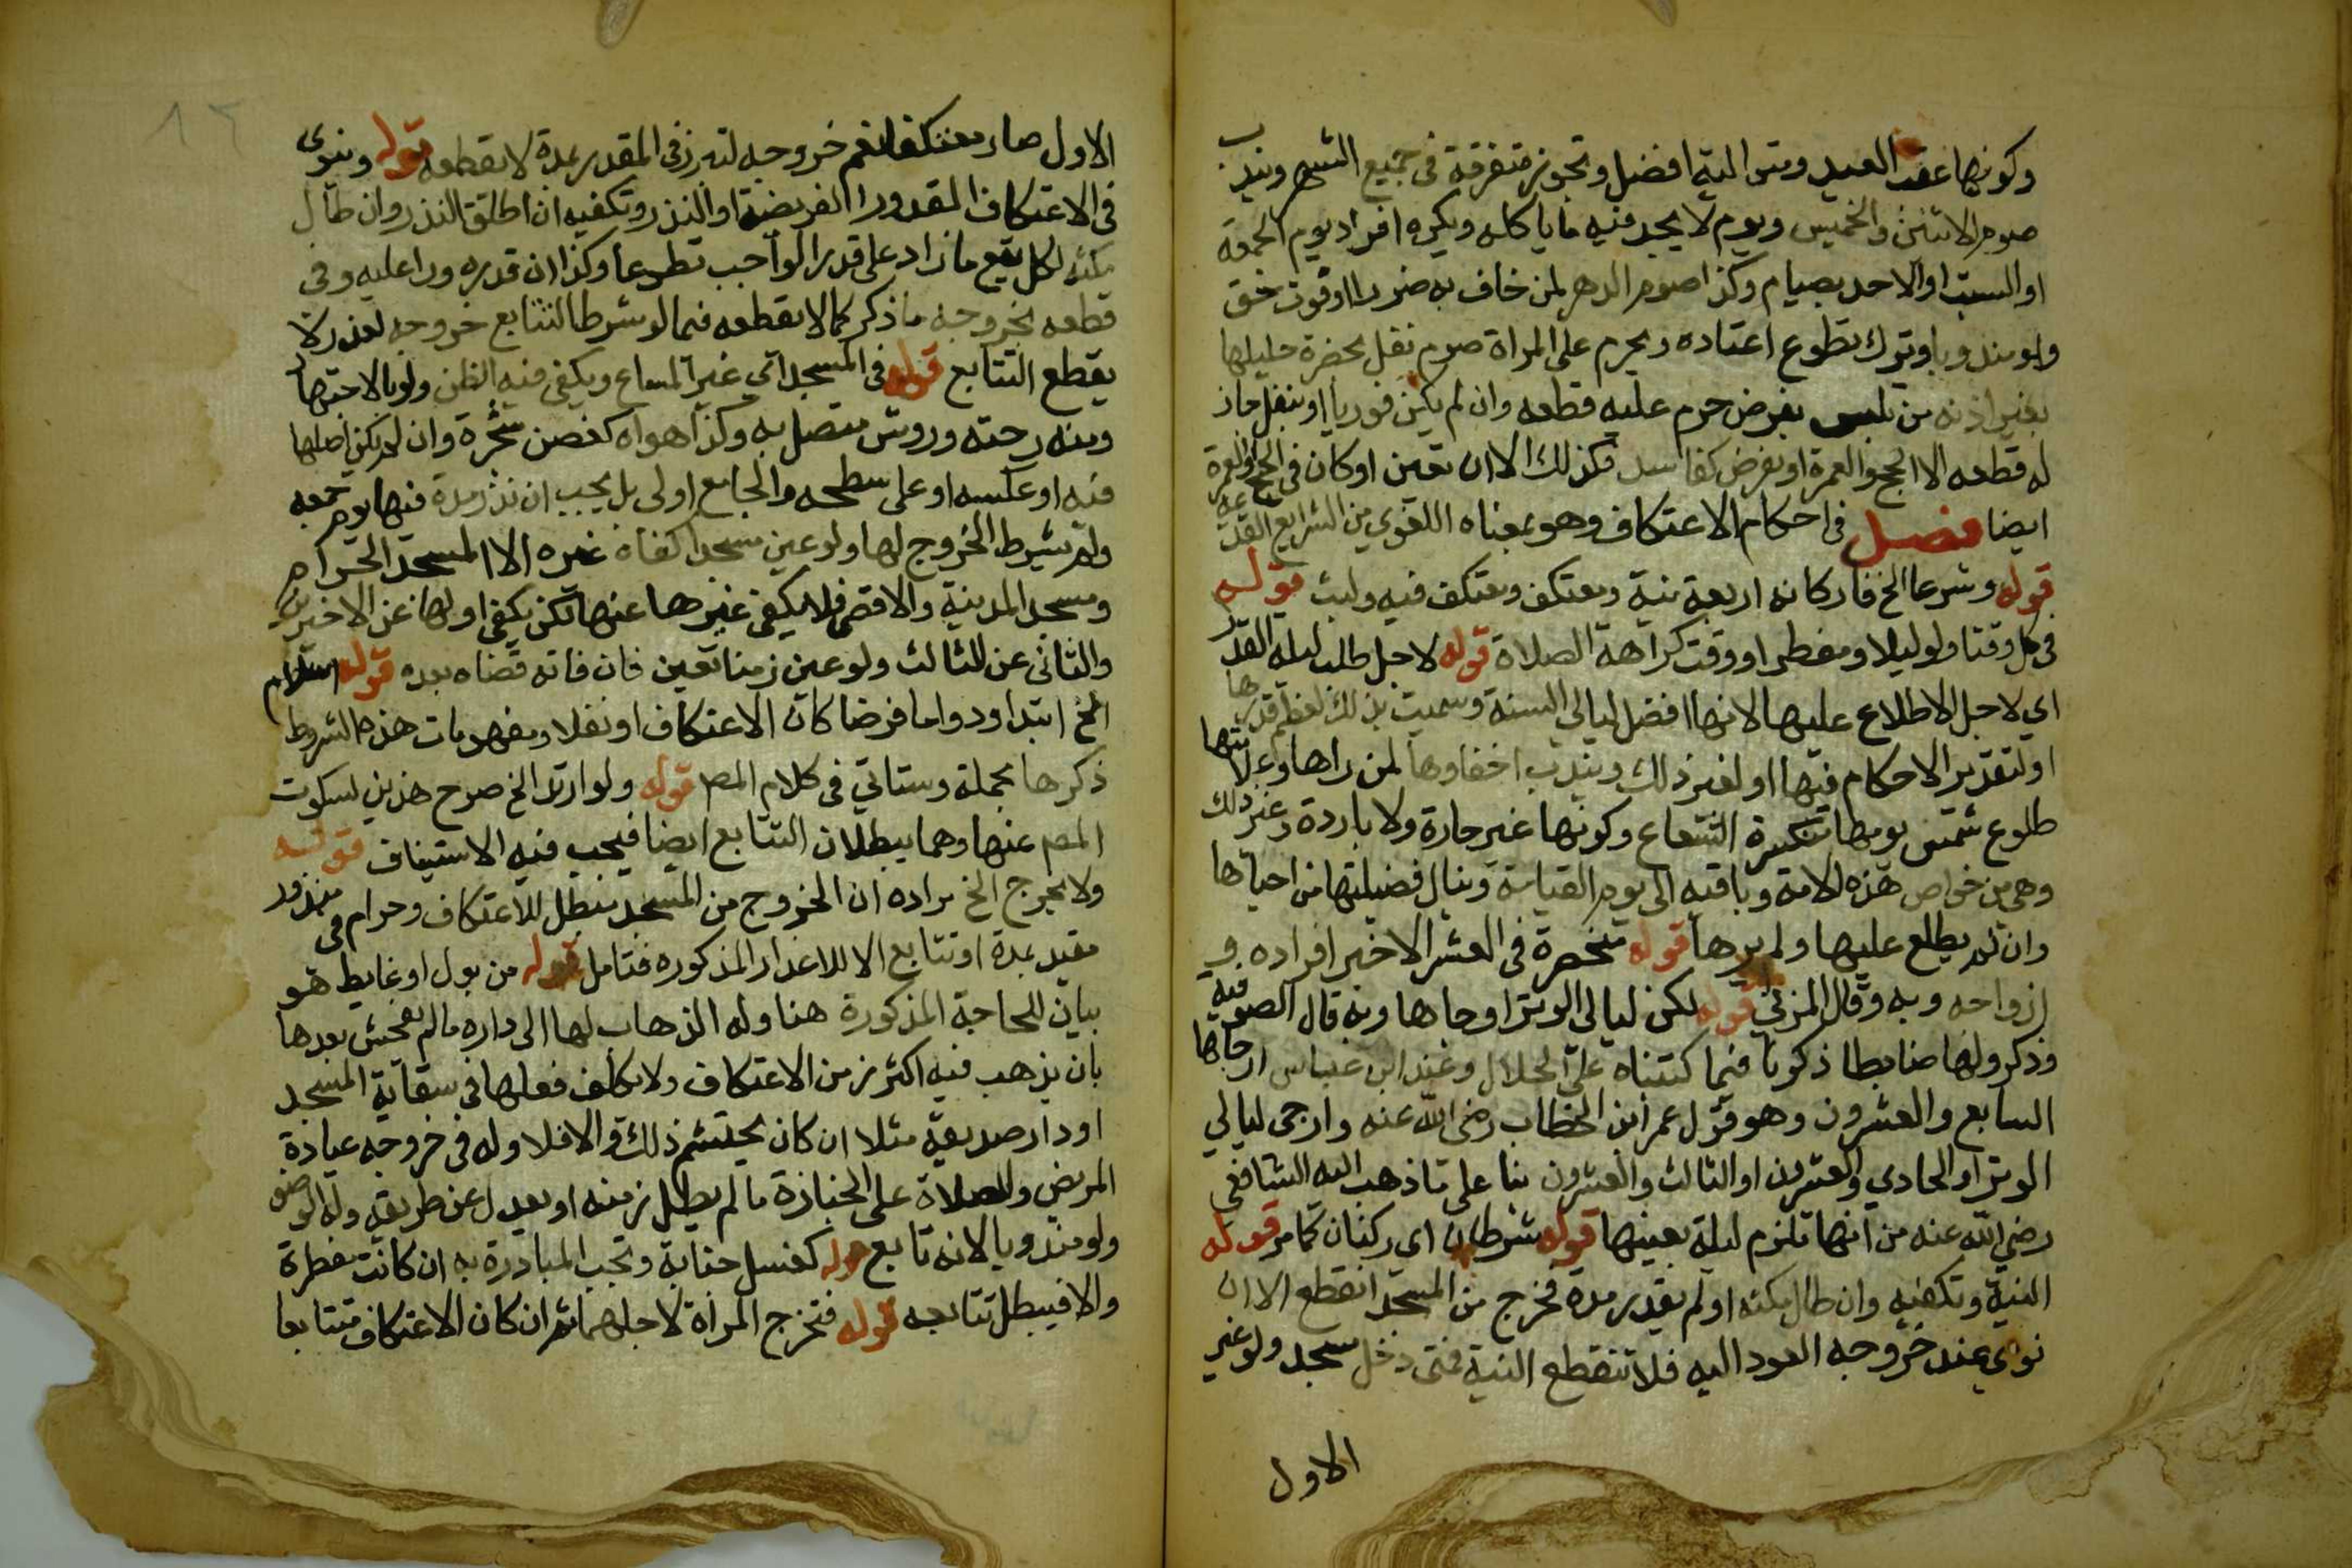 وكونها عقب العيد ومتوالية افضل وتجوز متفرقة في جميع الشهر ويندب
صوم الاثنين والخميس ويوم لا يجد فيه ما ياكله ويكره افراد يوم الجمعة
او السبت او الاحد بصيام وكذا صوم الدهر لمن خاف به ضررا او فوت حق
ولو مندوبا وترك تطوع اعتاده ويحرم على المراة صوم نفل بحضرة حليلها
بغير اذنه من تلبس بفرض حرم عليه قطعه وان لم يكن فوريا او بنفل جاز
له قطعه الا الحج والعمرة او بفرض كفاية فكذلك الا ان تعين او كان في الحج والعمرة
ايضا فصل في احكام الاعتكاف وهو بمعناه اللغوي من الشرايع القديمة
قوله وشرعا الخ فاركانه اربعة نية ومعتكف ومعتكف فيه ولبث قوله
في كل وقت ولو ليلا ومفطرا ووقت كراهة الصلاة قوله لاجل طلب ليلة القدر
اي لاجل الاطلاع عليها لانها افضل ليالي السنة وسميت بذلك لعظم قدرها
او لتقدير الاحكام فيها او لغير ذلك ويندب اخفاوها لمن راها وعلامتها
طلوع شمس يومها منكسرة الشعاع وكونها غير حارة ولا باردة وغير ذلك
وهي من خواص هذه الامة وباقية الى يوم القيامة وينال فضيلتها من احياها
وان لم يطلع عليها ولم يرها قوله منحصرة في العشر الاخير افراده و
ازواجه وبه وقال المزني قوله لكن ليالي الوتر ارجاها وبه قال الصوفية
وذكروا لها ضابطا ذكرنا فيما كتبناه على الجلال وعند ابن عباس ارجاها
السابع والعشرون وهو قول عمر ابن الخطاب رضي الله عنه وارجى ليالي
الوتر او الحادي والعشرون او الثالث والعشرون بنا على ما ذهب اليه الشافعي
رضي الله عنه من انها تلزم ليلة بعينها قوله شرطان اي ركنان كما مر قوله
النية وتكفيه وان طال مكثه او لم يقدر مدة فخرج من المسجد انقطع الا ان
نوى عند خروجه العود اليه فلا تنقطع النية فمتى دخل مسجد ولو غير
الاول
الاول صار معتكفا نعم خروجه لتبرز في المقدر بمدة لا يقطعه قوله وينوي
في الاعتكاف المقدور الفريضة او النذر وتكفيه ان اطلق النذر وان طال
مكثه لكل يقع ما زاد على قدر الواجب تطوعا وكذا ان قدره وزاد عليه وفي
قطعه بخروجه ما ذكر كما لا يقطعه فيما لو شرط التتابع خروجه لعذر لا
يقطع التتابع قوله في المسجد اي غير المساع ويكفي فيه الظن ولو بالاجتهاد
ومنه رحبته وروشن متصل به وكذا هواه كغصن شجرة وان لم يكن اصلها
فيه او عكسه او على سطحه والجامع اولى بل يجب ان نذر مدة فيها يوم جمعه
ولم يشرط الخروج لها ولو عين مسجدا كفاه غيره الا المسجد الحرام
ومسجد المدينة والاقصى فلا يكفي غيرها عنها لكن يكفي اولها عن الاخيرين
والثاني عن الثالث ولو عين زمنا تعين فان فاته قضاه بعده قوله اسلام
الخ ابتدا ودواما فرضا كان الاعتكاف او نفلا ومفهومات هذه الشروط
ذكرها مجملة وستاتي في كلام المص قوله ولو ارتد الخ صرح هذين لسكوت
المص عنها وهما يبطلان التتابع ايضا فيجب فيه الاستيناف قوله
ولا يخرج الخ مراده ان الخروج من المسجد مبطل للاعتكاف وحرام في منذور
مقيد بمدة او تتابع الا للاعذار المذكوره فتامل قوله من بول او غايط هو
بيان للحاجة المذكورة هنا وله الذهاب لها الى داره ما لم يفحش بعدها
بان يذهب فيه اكثر زمن الاعتكاف ولا يكلف فعلها في سقاية المسجد
او دار صديقه مثلا ان كان يحتشم ذلك والا فلا وله في خروجه عيادة
المريض والصلاة على الجنازة ما لم يطل زمنه او يعدل عن طريقه وله الوضو
ولو مندوبا لانه تابع قوله كغسل جنابة وتجب المبادرة به ان كانت مفطرة
والا فيبطل تتابعه قوله فتخرج المراة لاجلهما ثم ان كان الاعتكاف متتابعا